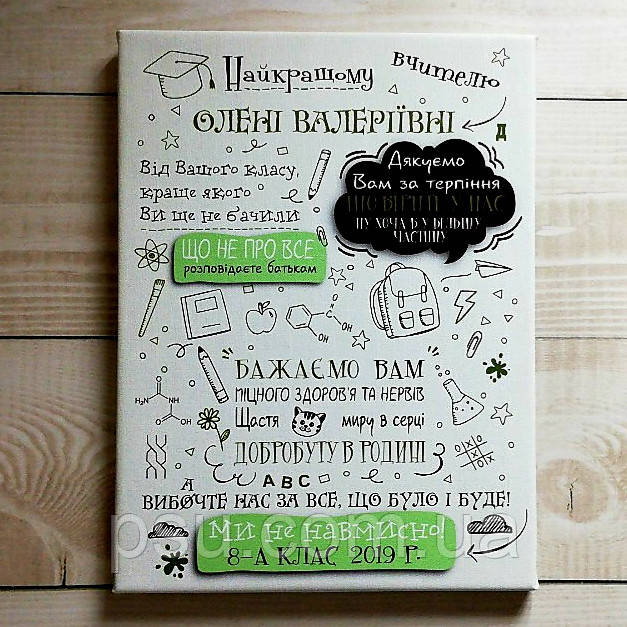 Найкращому
вчителю
ОЛЕНІ ВАЛЕРІЇВНІ
Д
Від Вашого класу,
краще якого
Ви ще не бачили
Дякуємо
Вам за терпіння
ЩО ВІРИТЕ У НАС
НУ ХОЧА Б У БІЛЬШУ
ЧАСТИНУ
ЩО НЕ ПРО ВСЕ
розповідаєте батькам
OH
C
O
OH
БАЖАЄМО ВАМ
МІЦНОГО ЗДОРОВ'Я ТА НЕРВІВ
Щастя миру в серці
ДОБРОБУТУ В РОДИНІ
O O
H₂N NH OH
X O
A B C
А
ВИБАЧТЕ НАС ЗА ВСЕ, ЩО БУЛО І БУДЕ!
МИ НЕ НАВМИСНО!
8-А КЛАС 2019 Р.
psu.com.ua